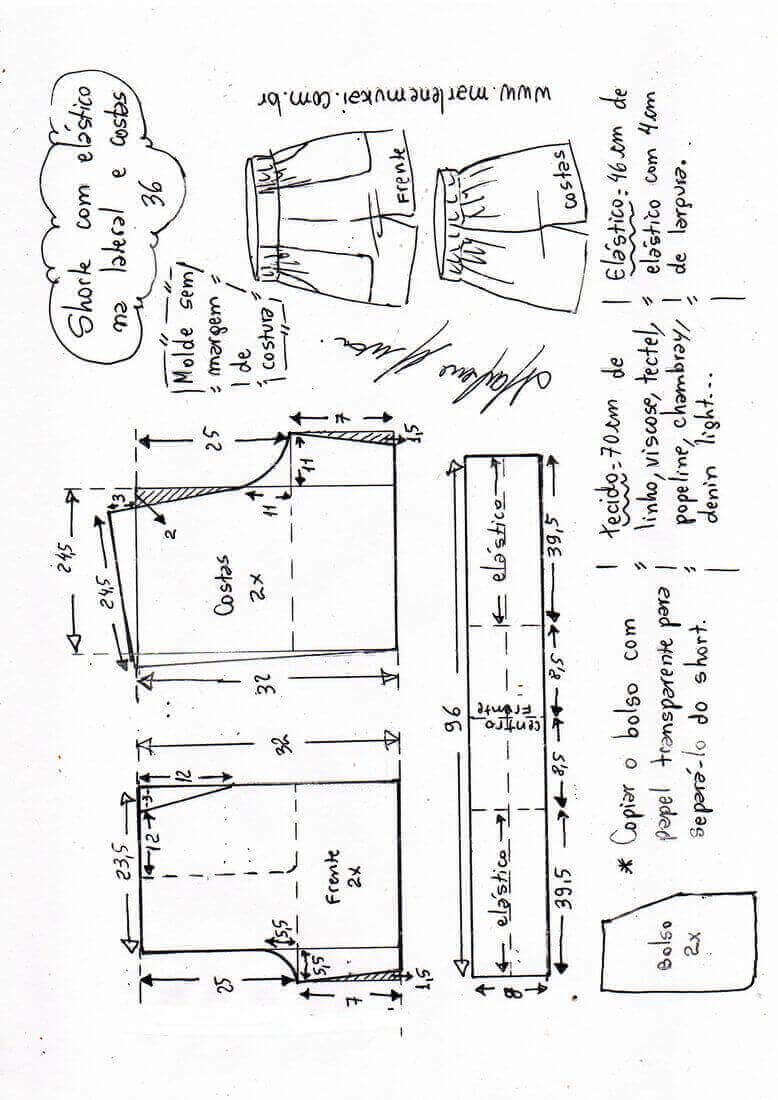 Shorte com elástico
na lateral e costas
36
www.marlenemukai.com.br
Molde sem
margem
de
costura
Frente
costas
Marlene Mukai
25
7
24,5
3
24,5
2
11
11
1,5
Costas
2x
32
32
12
23,5
3
12
Frente
2x
5,5
5,5
25
7
1,5
96
elástico
centro
Frente
elástico
39,5
8,5
8,5
39,5
8
tecido=70cm de
linho, viscose, tectel,
popeline, chambray,
denin light...
Elástico=46cm de
elástico com 4cm
de largura.
* Copiar o bolso com
papel transparente para
separá-lo do short.
Bolso
2x